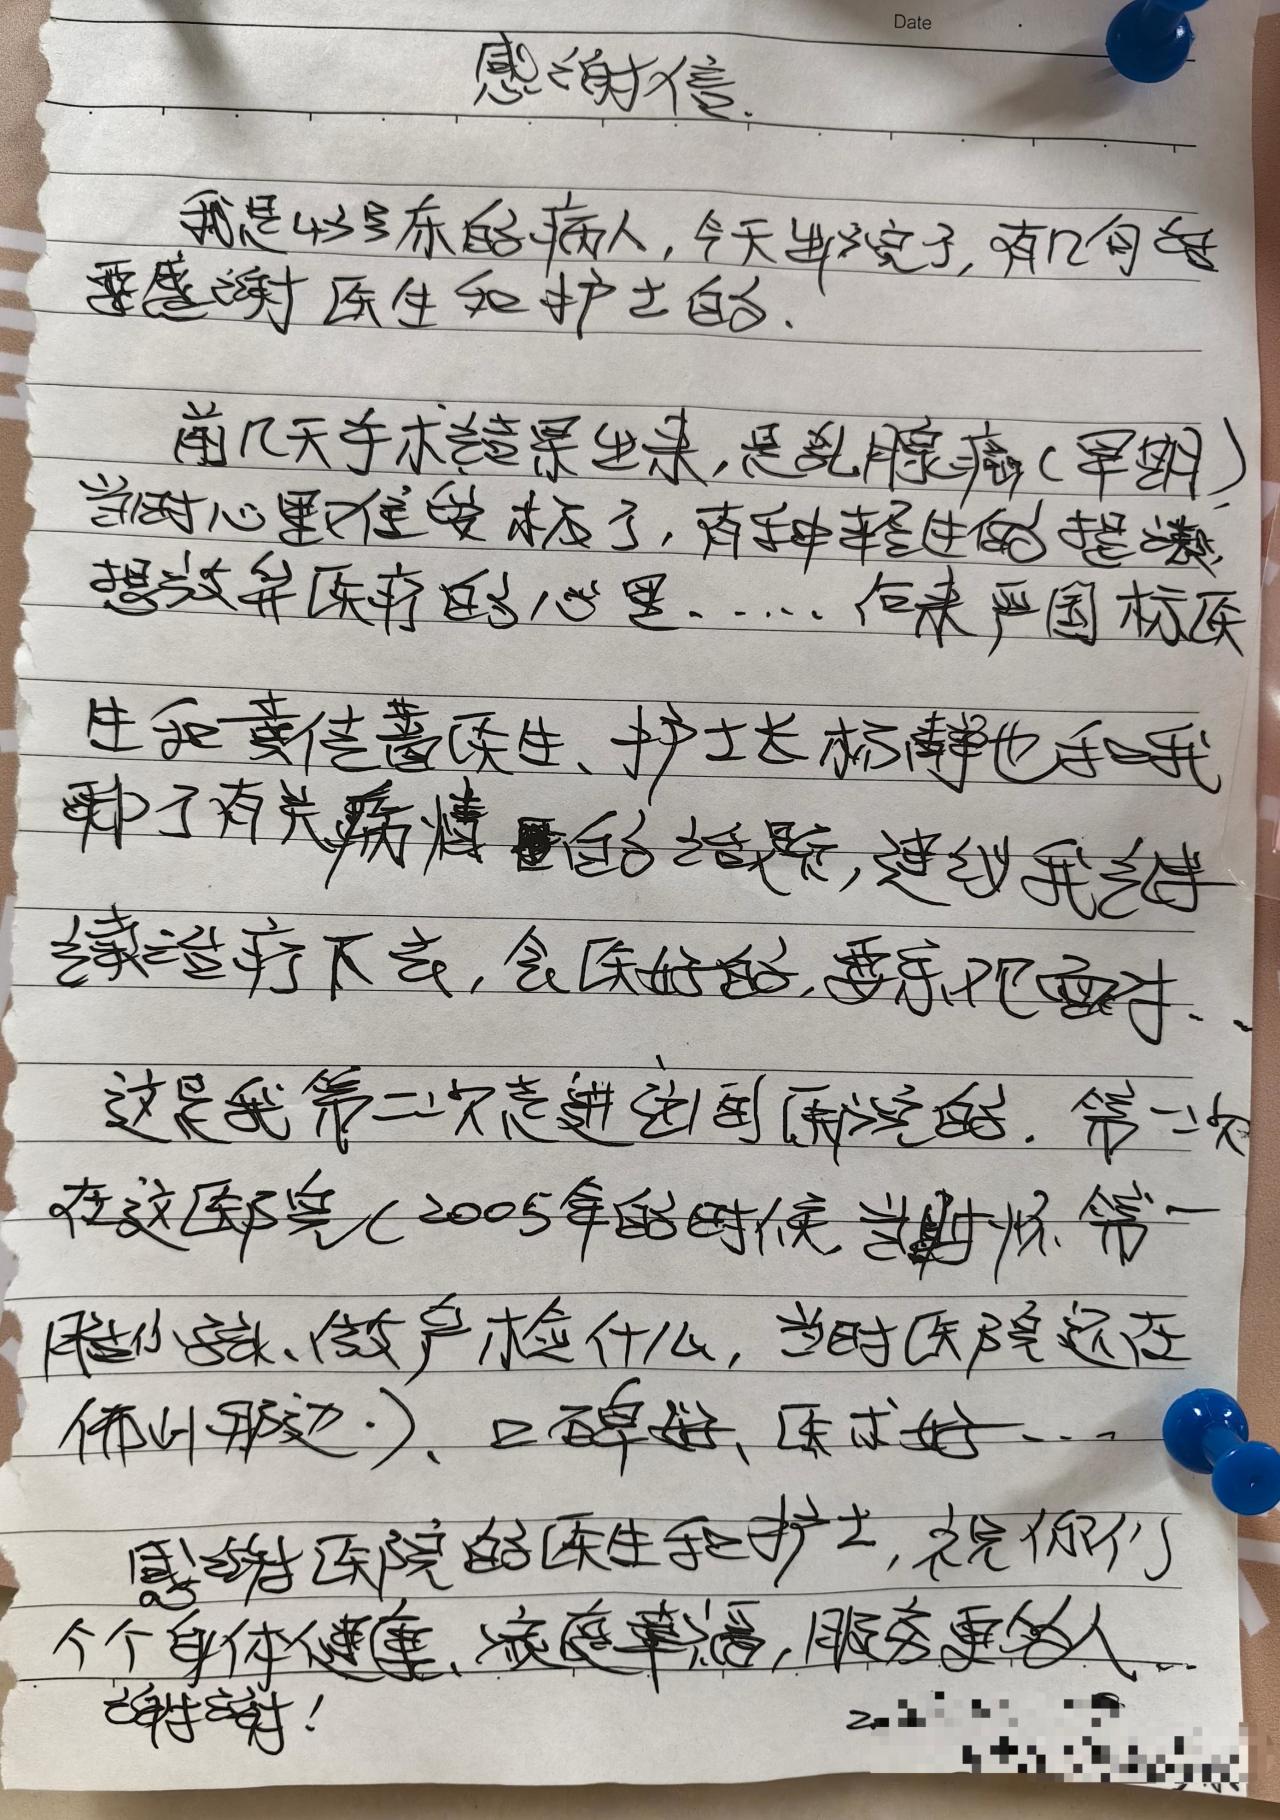 Date
感谢信.
我是43号床的病人,今天出院了,有几句话
要感谢医生和护士的.
前几天手术结果出来,是乳腺癌(早期)
当时心里难受极了,有种轻生的想
想放弃医疗的心里......后来严国标医
生和黄佳蔷医生、护士长杨静也和我
聊了有关病情的话题,建议我继
续治疗下去,会医好的,要乐观面对...
这是我第二次走进这间医院的.第一次
在这医院(2005年的时候,当时怀第一
胎小孩、做产检什么,当时医院还在
佛山那边.)、口碑好、医术好....
感谢医院的医生和护士,祝你们
个个身体健康、家庭幸福,服务更多人...
谢谢!